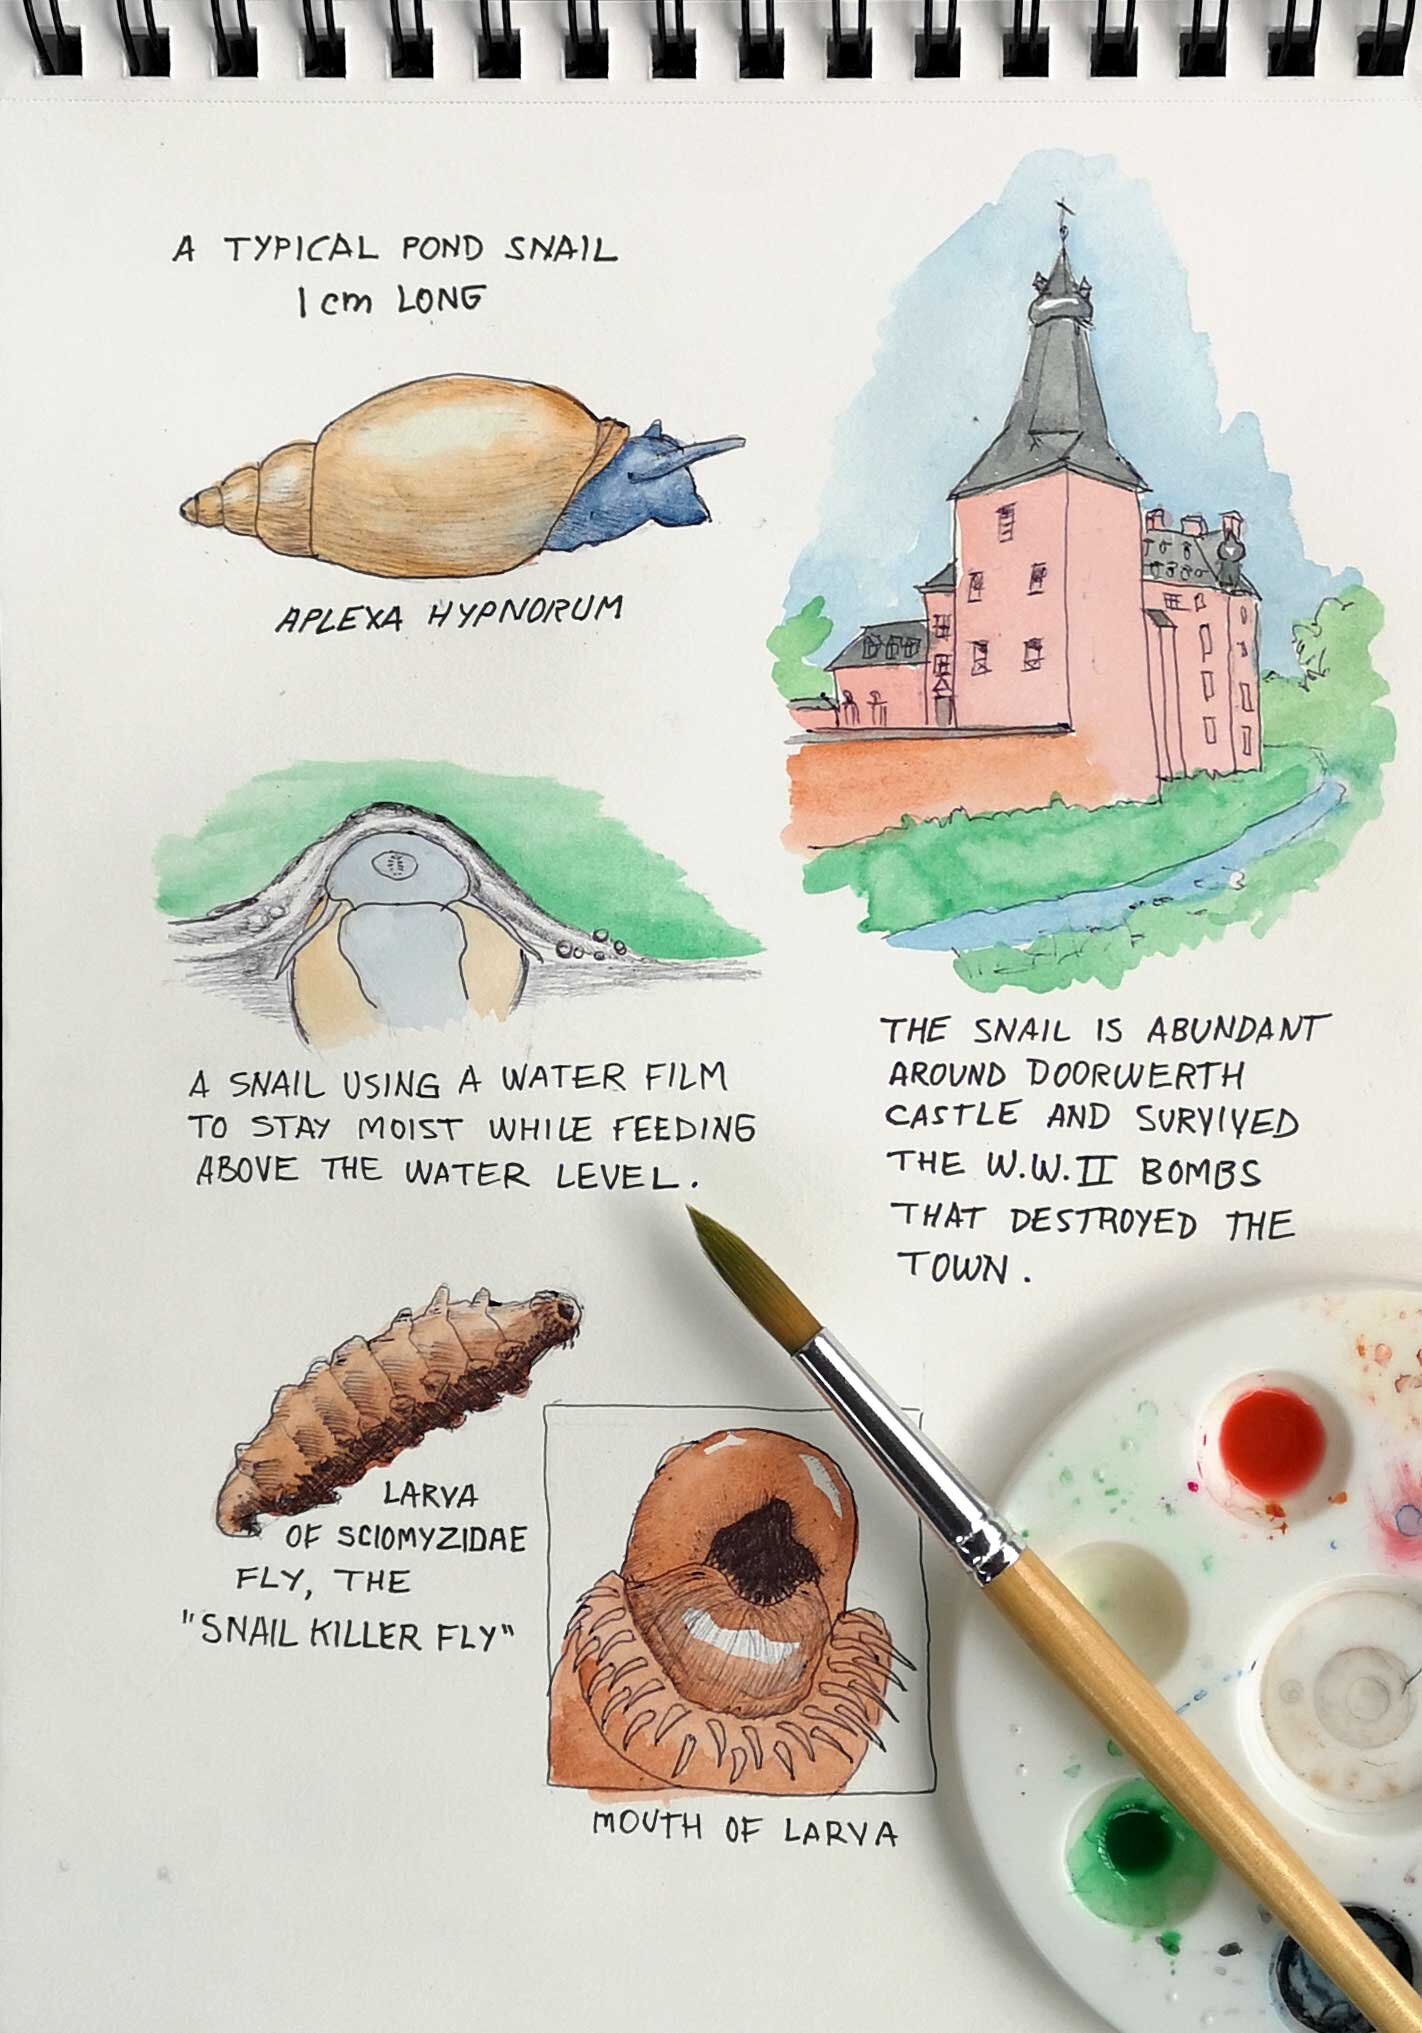 A TYPICAL POND SNAIL
1 cm LONG
APLEXA HYPNORUM
A SNAIL USING A WATER FILM
TO STAY MOIST WHILE FEEDING
ABOVE THE WATER LEVEL.
THE SNAIL IS ABUNDANT
AROUND DOORWERTH
CASTLE AND SURVIVED
THE W.W.II BOMBS
THAT DESTROYED THE
TOWN.
LARVA
OF SCIOMYZIDAE
FLY, THE
"SNAIL KILLER FLY"
MOUTH OF LARVA